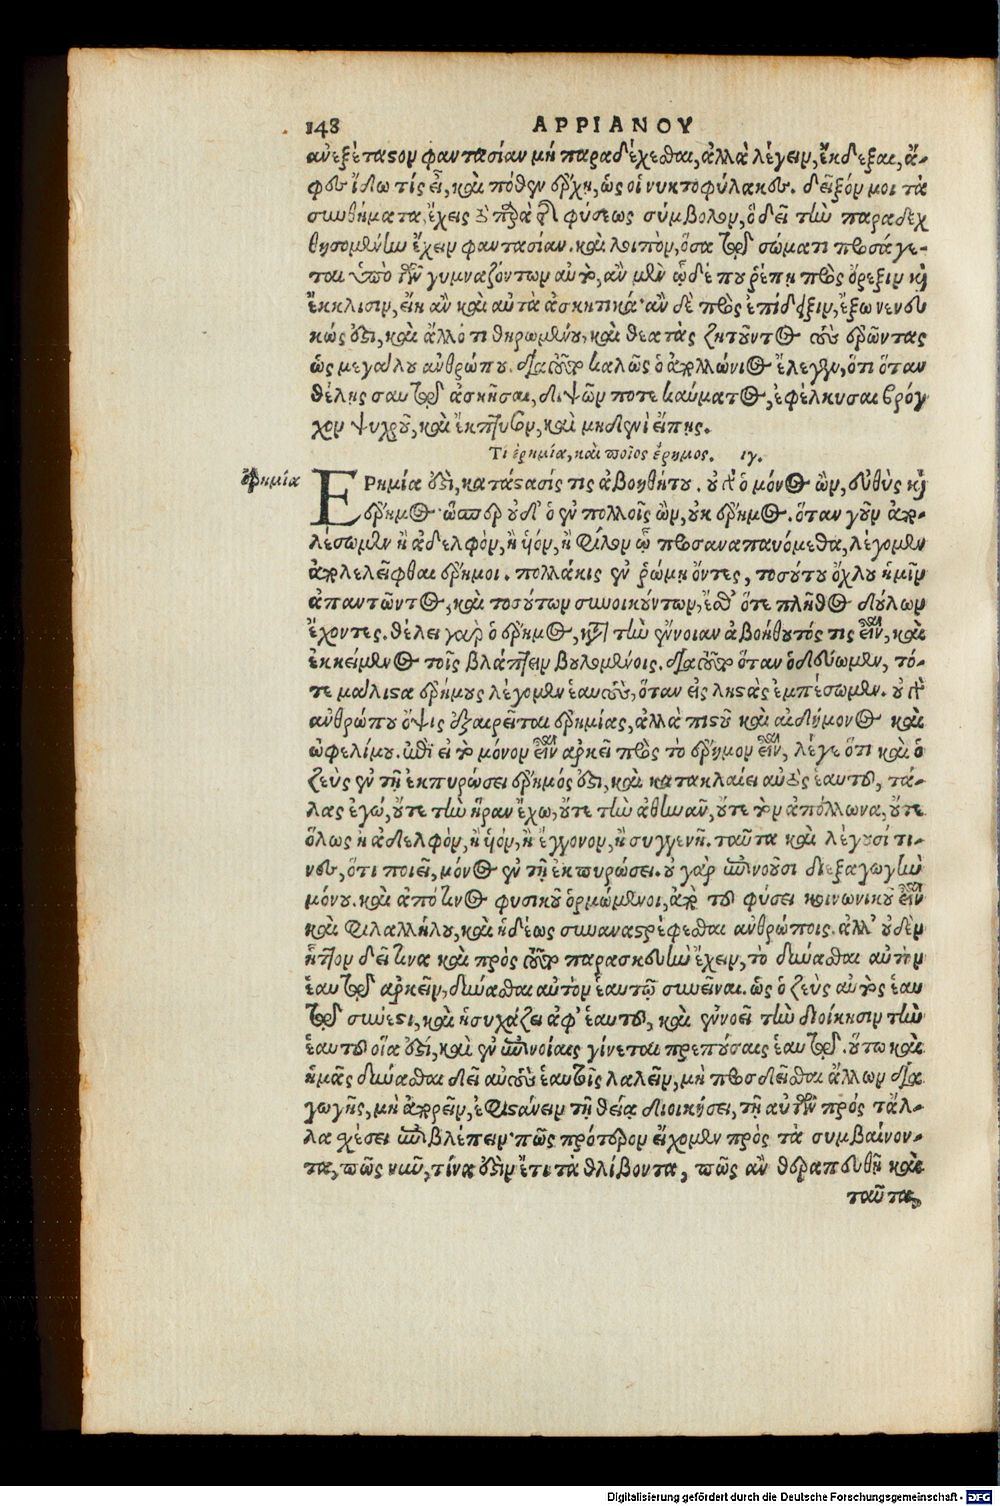 148 ΑΡΡΙΑΝΟΥ
ἀνεξέταστον φαντασίαν μὴ παραδέχεσθαι, ἀλλὰ λέγειν, ἔκδεξαι, ἄ-
φες ἴδω τίς εἶ, καὶ πόθεν ἔρχῃ, ὡς οἱ νυκτοφύλακες. δεῖξόν μοι τὰ
συνθήματα, ἔχεις τὸ παρὰ τῆς φύσεως σύμβολον, ὃ δεῖ τὴν παραδεχ
θησομένην ἔχειν φαντασίαν. καὶ λοιπὸν, ὅσα τῷ σώματι προσάγε-
ται ὑπὸ τῶν γυμναζόντων αὐτὸ, ἂν μὲν ὧδέ που ῥέπῃ πρὸς ὄρεξιν καὶ
ἔκκλισιν, εἴη ἂν καὶ αὐτὰ ἀσκητικά· ἂν δὲ πρὸς ἐπίδειξιν, ἔξω νενευ
κώς ἐστι, καὶ ἄλλό τι θηρωμένου, καὶ θεατὰς ζητοῦντος τοὺς ἐροῦντας
ὡς μεγάλου ἀνθρώπου. διὰ τοῦτο καλῶς ὁ ἀπολλώνιος ἔλεγεν, ὅτι ὅταν
θέλῃς σαυτῷ ἀσκῆσαι, διψῶν ποτε καύματος, ἐφέλκυσαι βρόγ
χον ψυχροῦ, καὶ ἔκπτυσον, καὶ μηδενὶ εἴπῃς.
Τί ἐρημία, καὶ ποῖος ἔρημος. ιγ.
ἐρημία
ΕΡημία ἐστὶ, κατάστασίς τις ἀβοηθήτου. οὐ γὰρ ὁ μόνος ὢν, εὐθὺς καὶ
ἔρημος· ὥσπερ οὐδ' ὁ ἐν πολλοῖς ὢν, οὐκ ἔρημος. ὅταν γοῦν ἀπο-
λέσωμεν ἢ ἀδελφὸν, ἢ ὑιόν, ἢ φίλον ᾧ προσαναπαυόμεθα, λέγομεν
ἀπολελεῖφθαι ἔρημοι. πολλάκις ἐν ῥώμῃ ὄντες, τοσούτου ὄχλου ἡμῖν
ἀπαντῶντος, καὶ τοσούτων συνοικούντων, ἔσθ' ὅτε πλῆθος δούλων
ἔχοντες. θέλει γὰρ ὁ ἔρημος, κατὰ τὴν ἔννοιαν ἀβοήθητός τις εἶναι, καὶ
ἐκκείμενος τοῖς βλάπτειν βουλομένοις. διὰ τοῦτο ὅταν ὁδεύωμεν, τό-
τε μάλιστα ἐρήμους λέγομεν ἑαυτοὺς, ὅταν εἰς λῃστὰς ἐμπέσωμεν. οὐ γὰρ
ἀνθρώπου ὄψις ἐξαιρεῖται ἐρημίας, ἀλλὰ πιστοῦ καὶ αἰδήμονος καὶ
ὠφελίμου. ἐπεὶ εἰ τὸ μόνον εἶναι ἀρκεῖ πρὸς τὸ ἔρημον εἶναι, λέγε ὅτι καὶ ὁ
ζεὺς ἐν τῇ ἐκπυρώσει ἔρημός ἐστι, καὶ κατακλαίει αὐτὸς ἑαυτοῦ, τά-
λας ἐγώ, οὔτε τὴν ἥραν ἔχω, οὔτε τὴν ἀθηνᾶν, οὔτε τὸν ἀπόλλωνα, οὔτε
ὅλως ἢ ἀδελφὸν, ἢ ὑιόν, ἢ ἔγγονον, ἢ συγγενῆ. ταῦτα καὶ λέγουσί τι-
νες, ὅτι ποιεῖ, μόνος ἐν τῇ ἐκπυρώσει. οὐ γὰρ ἐπινοοῦσι διεξαγωγὴν
μόνου. καὶ ἀπό τινος φυσικοῦ ὁρμώμενοι, ἀπὸ τοῦ φύσει κοινωνικοῦ εἶναι
καὶ φιλαλλήλου, καὶ ἡδέως συναναστρέφεσθαι ἀνθρώποις. ἀλλ' οὐδὲν
ἧττον δεῖ τινα καὶ πρὸς τοῦτο παρασκευὴν ἔχειν, τὸ δύνασθαι αὐτὸν
ἑαυτῷ ἀρκεῖν, δύνασθαι αὐτὸν ἑαυτῷ συνεῖναι. ὡς ὁ ζεὺς αὐτὸς ἑαυ
τῷ σύνεστι, καὶ ἡσυχάζει ἀφ' ἑαυτοῦ, καὶ ἐννοεῖ τὴν διοίκησιν τὴν
ἑαυτοῦ οἵα ἐστί, καὶ ἐν ἐπινοίαις γίνεται πρεπούσαις ἑαυτῷ. οὕτω καὶ
ἡμᾶς δύνασθαι δεῖ αὐτοὺς ἑαυτοῖς λαλεῖν, μὴ προσδεῖσθαι ἄλλων δια
γωγῆς, μὴ ἀπορεῖν, ἐφιστάνειν τῇ θείᾳ διοικήσει, τῇ αὐτῶν πρός τἄλ-
λα σχέσει ἐπιβλέπειν· πῶς πρότερον εἴχομεν πρὸς τὰ συμβαίνον-
τα, πῶς νῦν, τίνα ἐστὶν ἔτι τὰ θλίβοντα, πῶς ἂν θεραπευθῇ καὶ
ταῦτα,
Digitalisierung gefördert durch die Deutsche Forschungsgemeinschaft - DFG